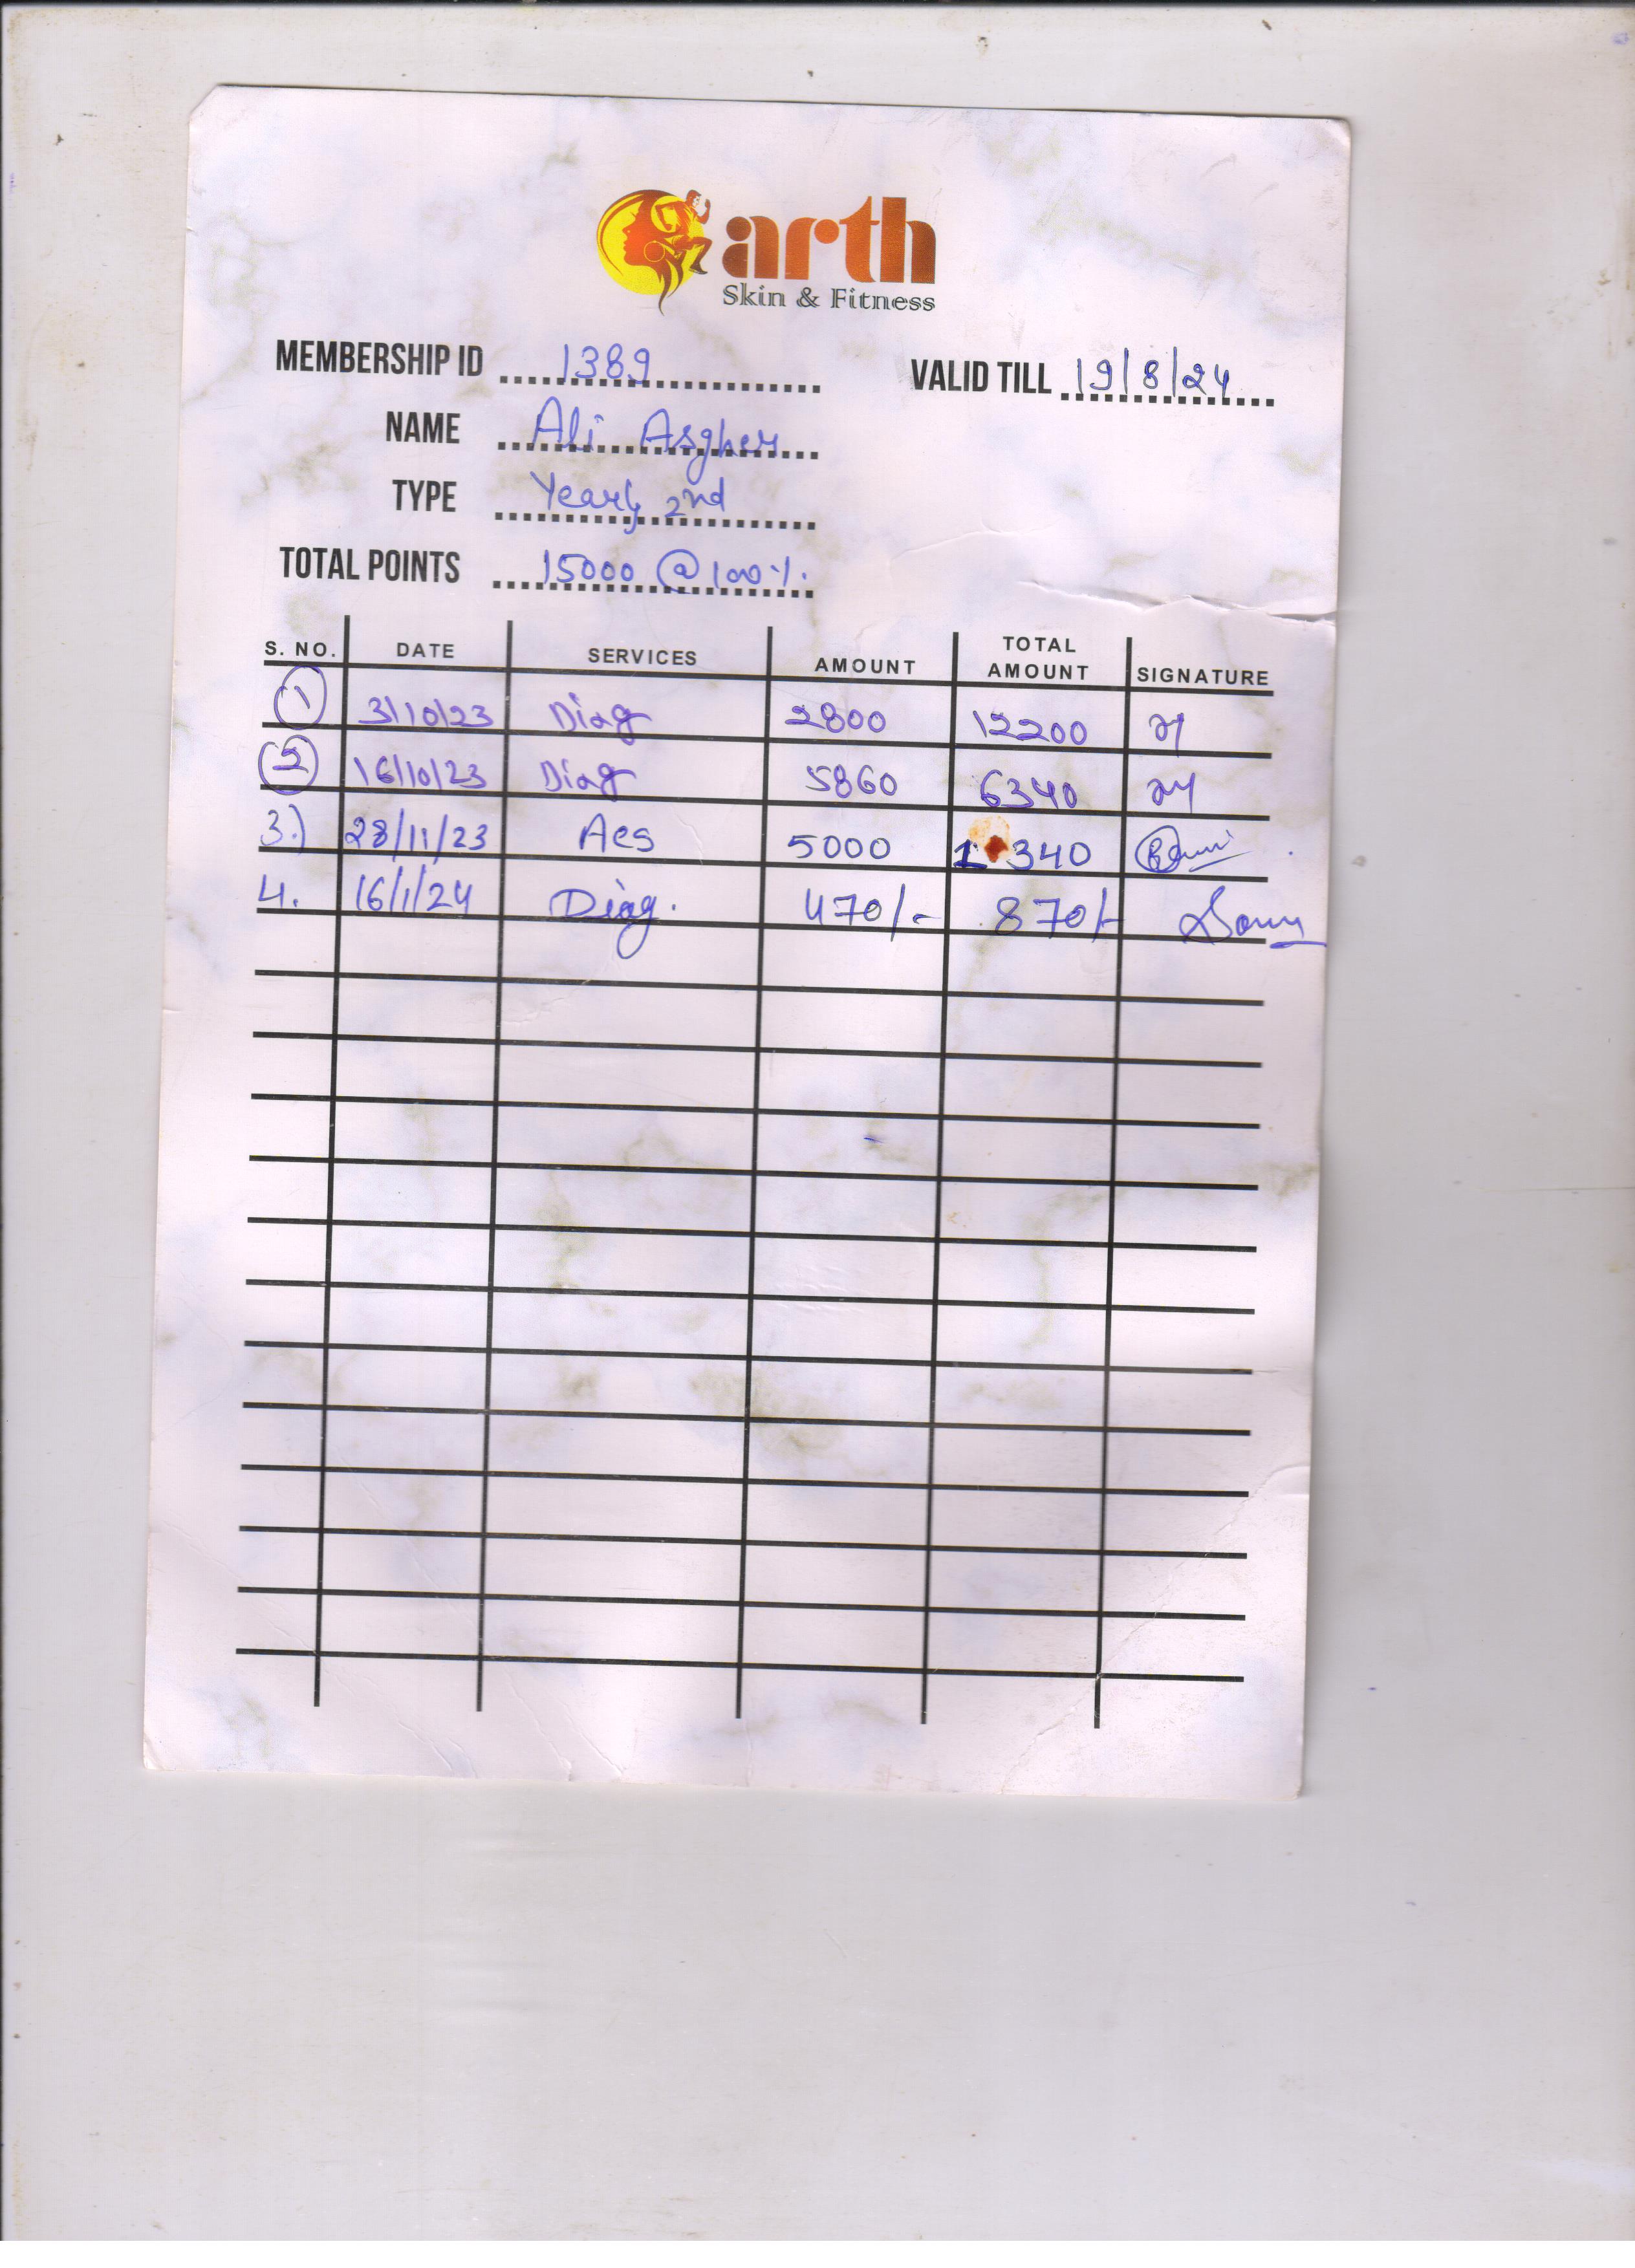 arth
Skin & Fitness
MEMBERSHIP ID 1389 VALID TILL 19/8/24
NAME Ali Asgher
TYPE Yearly 2nd
TOTAL POINTS 15000 @ 100%.
S. NO. DATE SERVICES AMOUNT TOTAL AMOUNT SIGNATURE
1 3/10/23 Diag 2800 12200
2 16/10/23 Diag 5860 6340
3.) 28/11/23 Aes 5000 1340
4. 16/1/24 Diag. 470/- 870/-